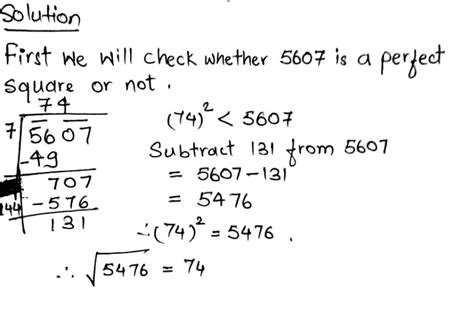 Solution
First we will check whether 5607 is a perfect
square or not.
74
7 5607
-49
707
144 -576
131
(74)² < 5607
Subtract 131 from 5607
= 5607-131
= 5476
∴(74)² = 5476.
∴ √5476 = 74